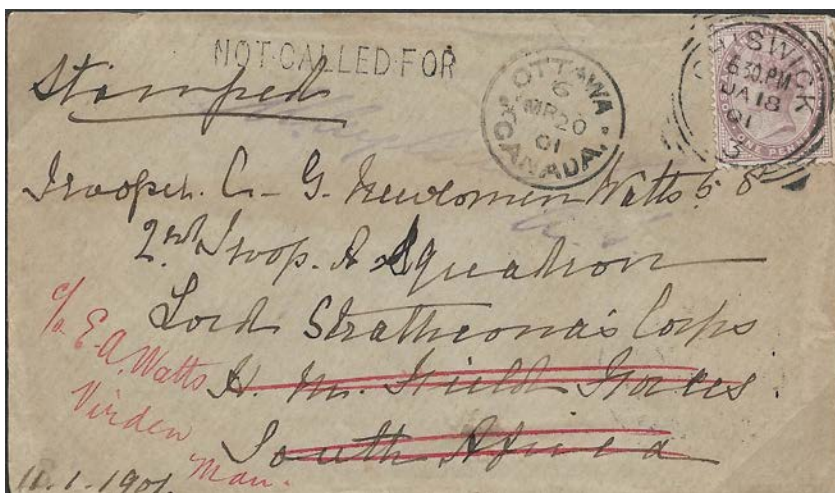 NOT CALLED FOR
Stamped
OTTAWA
6
MR 20
01
CANADA.
CHISWICK
6 30. PM
JA 18
01
3
ONE PENNY
Trooper. C. G. Newcomen Watts 58
2nd Troop. A Squadron
Lord Strathcona's Corps
H. M. Field Forces.
South Africa
c/o E. A. Watts
Virden
Man.
11. 1. 1901.